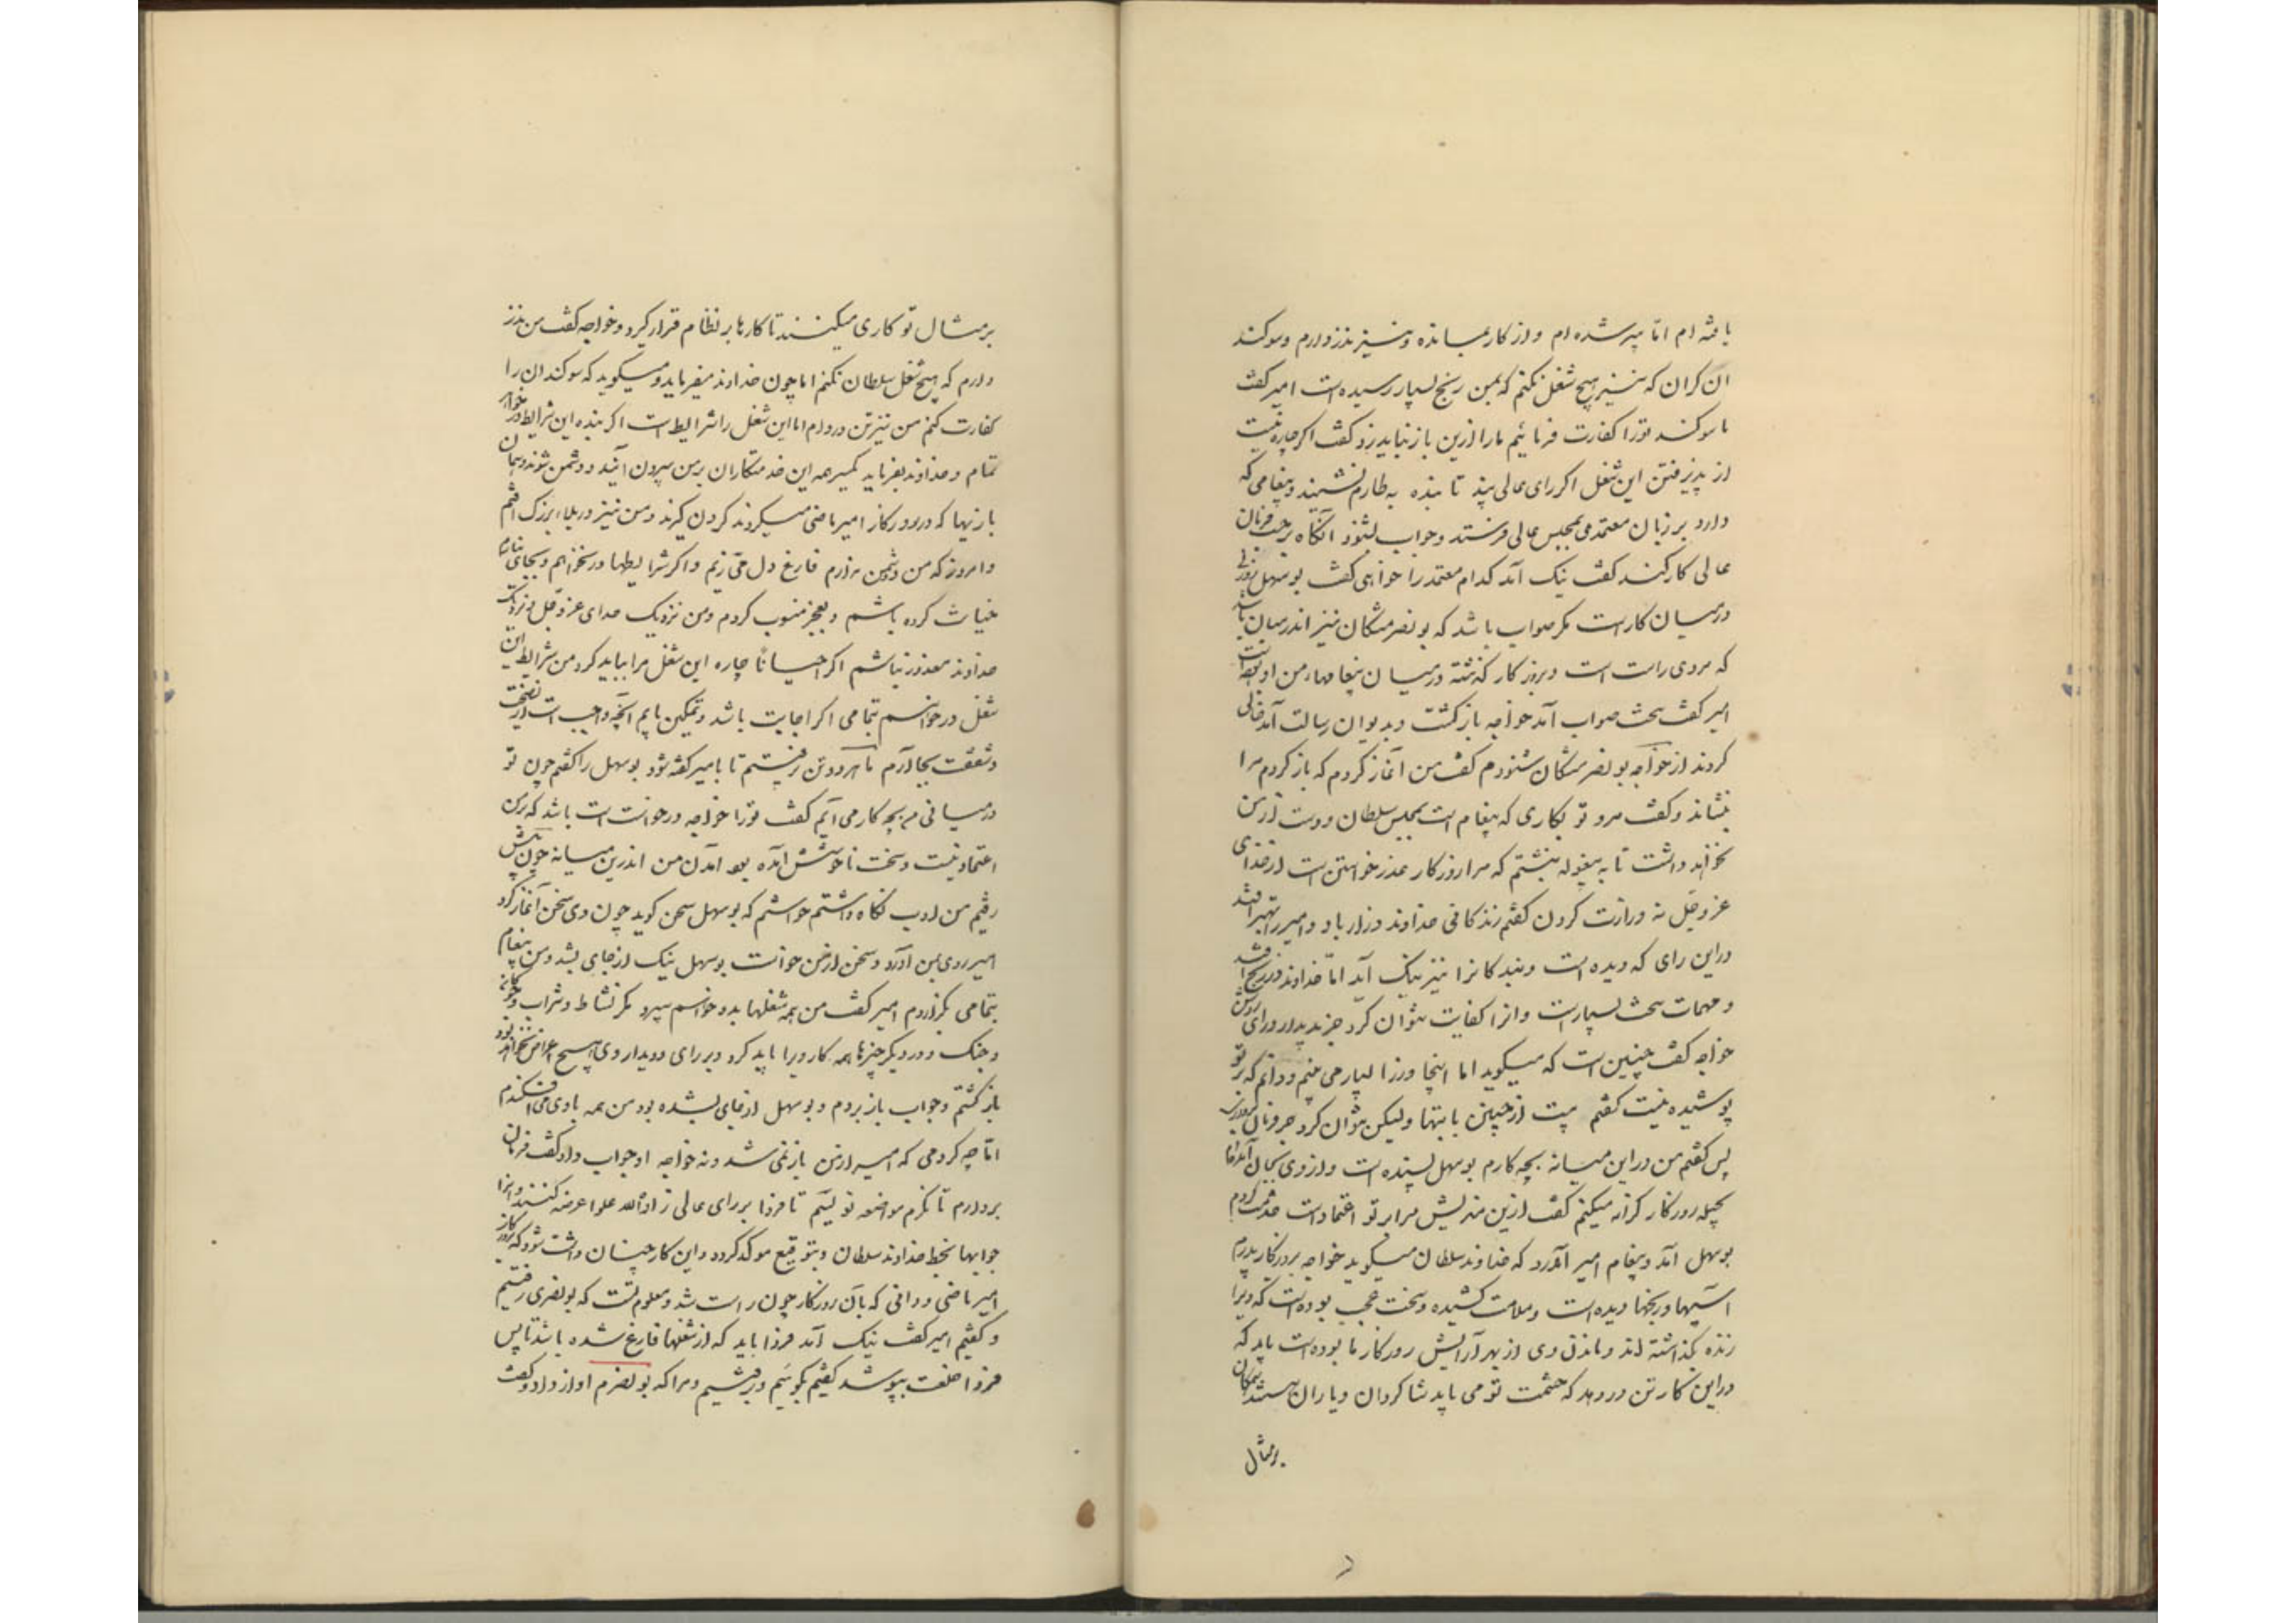 یافته ام اما پیر شده ام و از کار بمانده و نیز نذر دارم و سوکند
ان کران که نیز هیچ شغل نکنم که بمن رنج بسیار رسیده است امیر کفت
ما سوکند تو را کفارت فرمائیم ما را ازین باز نباید زد کفت اکر چاره نیست
از پذیرفتن این شغل اکر رای عالی بیند تا بنده به طارم نشیند و پیغامی که
دارد بر زبان معتمدی بمجلس عالی فرستد و جواب بشنود آنکاه بر حسب فرمان
عالی کار کند کفت نیک آمد کدام معتمد را خواهی کفت بوسهل زوزنی
در میان کار است مکر صواب باشد که بونصر مشکان نیز اندر میان باشد
که مردی راست است و بروزکار کذشته در میان پیغامهاء من او بوده است
امیر کفت سخت صواب آمد خواجه باز کشت و بدیوان رسالت آمد خالی
کردند از خواجه بونصر مشکان شنودم کفت من آغاز کردم که باز کردم مرا
بنشاند و کفت مرو تو بکاری که پیغام است بمجلس سلطان و دست از من
نخواهد داشت تا به بیغوله بنشستم که مرا روزکار عذر خواستن است از خدای
عز و جل نه وزارت کردن کفتم زندکانی خداوند دراز باد و امیر را بهتر افتد
در این رای که دیده است و بندکانرا نیز نیک آید اما خداوند در رنج افتد
و مهمات سخت بسیار است و انرا کفایت نتوان کرد جز بدیدار و رای روشن
خواجه کفت چنین است که میکوید اما اینجا وزرا بسیار می بینم و دانم که بر تو
پوشیده نیست کفتم هست از چنین بابتها ولیکن نتوان کرد جز فرمان برداری
پس کفتم من در این میانه بچه کارم بوسهل بسنده است و از وی بجان آمده ام
بحیله روزکار کرانه میکنم کفت ازین مندیش مرا بر تو اعتماد است خدمت کردم
بوسهل آمد و پیغام امیر آورد که خداوند سلطان میکوید خواجه بروزکار پدرم
آسیبها و رنجها دیده است و ملامت کشیده و سخت عجب بوده است که ویرا
زنده بکذاشته اند و ماندن وی از بهر آرایش روزکار ما بوده است باید که
در این کار تن در دهد که حشمت تو می باید شاکردان و یاران هستند همکان
برمثال
بر مثال تو کاری میکنند تا کارها بر نظام قرار کیرد و خواجه کفت من نذر
دارم که هیچ شغل سلطان نکنم اما چون خداوند میفرماید و میکوید که سوکندان را
کفارت کنم من نیز تن در دادم اما این شغل را شرایط است اکر بنده این شرایط در خواهد
تمام و خداوند بفرماید یکسر همه این خدمتکاران بر من بیرون آیند و دشمن شوند و همان
بازیها که در روزکار امیر ماضی میکردند کردن کیرند و من نیز در بلاء بزرک افتم
و امروز که من دشمن ندارم فارغ دل می زیم و اکر شرایطها در نخواهم و بجای نیارم
خیانت کرده باشم و بعجز منسوب کردم و من نزدیک خدای عز و جل و نزدیک
خداوند معذور نباشم اکر احیاناً چاره این شغل مرا بباید کرد من شرایط این
شغل درخواهم بتمامی اکر اجابت باشد و تمکین یابم آنچه واجب است از نصیحت
و شفقت بجا آرم ما هر دو تن رفتیم تا با امیر کفته شود بوسهل را کفتم چون تو
در میانی من بچه کار می آیم کفت تو را خواجه درخواست است باشد که بر من
اعتماد نیست و سخت ناخوشش آمده بود آمدن من اندرین میانه چون پیش
رفتیم من ادب نکاه داشتم خواستم که بوسهل سخن کوید چون وی سخن آغاز کرد
امیر روی بمن آورد و سخن از من خواست بوسهل نیک از جای بشد و من پیغام
بتمامی بکزاردم امیر کفت من همه شغلها بدو خواهم سپرد مکر نشاط و شراب و چوکان
و جنک و در دیکر چیزها همه کار ورا باید کرد و بر رای و دیدار وی هیچ اعتراض نخواهد بود
باز کشتم و جواب باز بردم و بوسهل از جای بشده بود من همه با وی می افکندم
اما چه کردمی که امیر از من باز نمی شد و نه خواجه او جواب داد کفت فرمان
بردارم تا نکرم مواضعه نویسم تا فردا بر رای عالی زاده الله علوا عرضه کنند و انرا
جوابها بخط خداوند سلطان و بتوقیع موکد کردد و این کار چنان داشت شود که بروزکار
امیر ماضی و دانی که بآن روزکار چون راست شد و معلوم تست که بونصری رفتیم
و کفتیم امیر کفت نیک آمد فردا باید که از شغلها فارغ شده باشد تا پس
فردا خلعت بپوشد کفتیم بکوئیم و رفتیم و مرا که بونصرم اواز داد و کفت